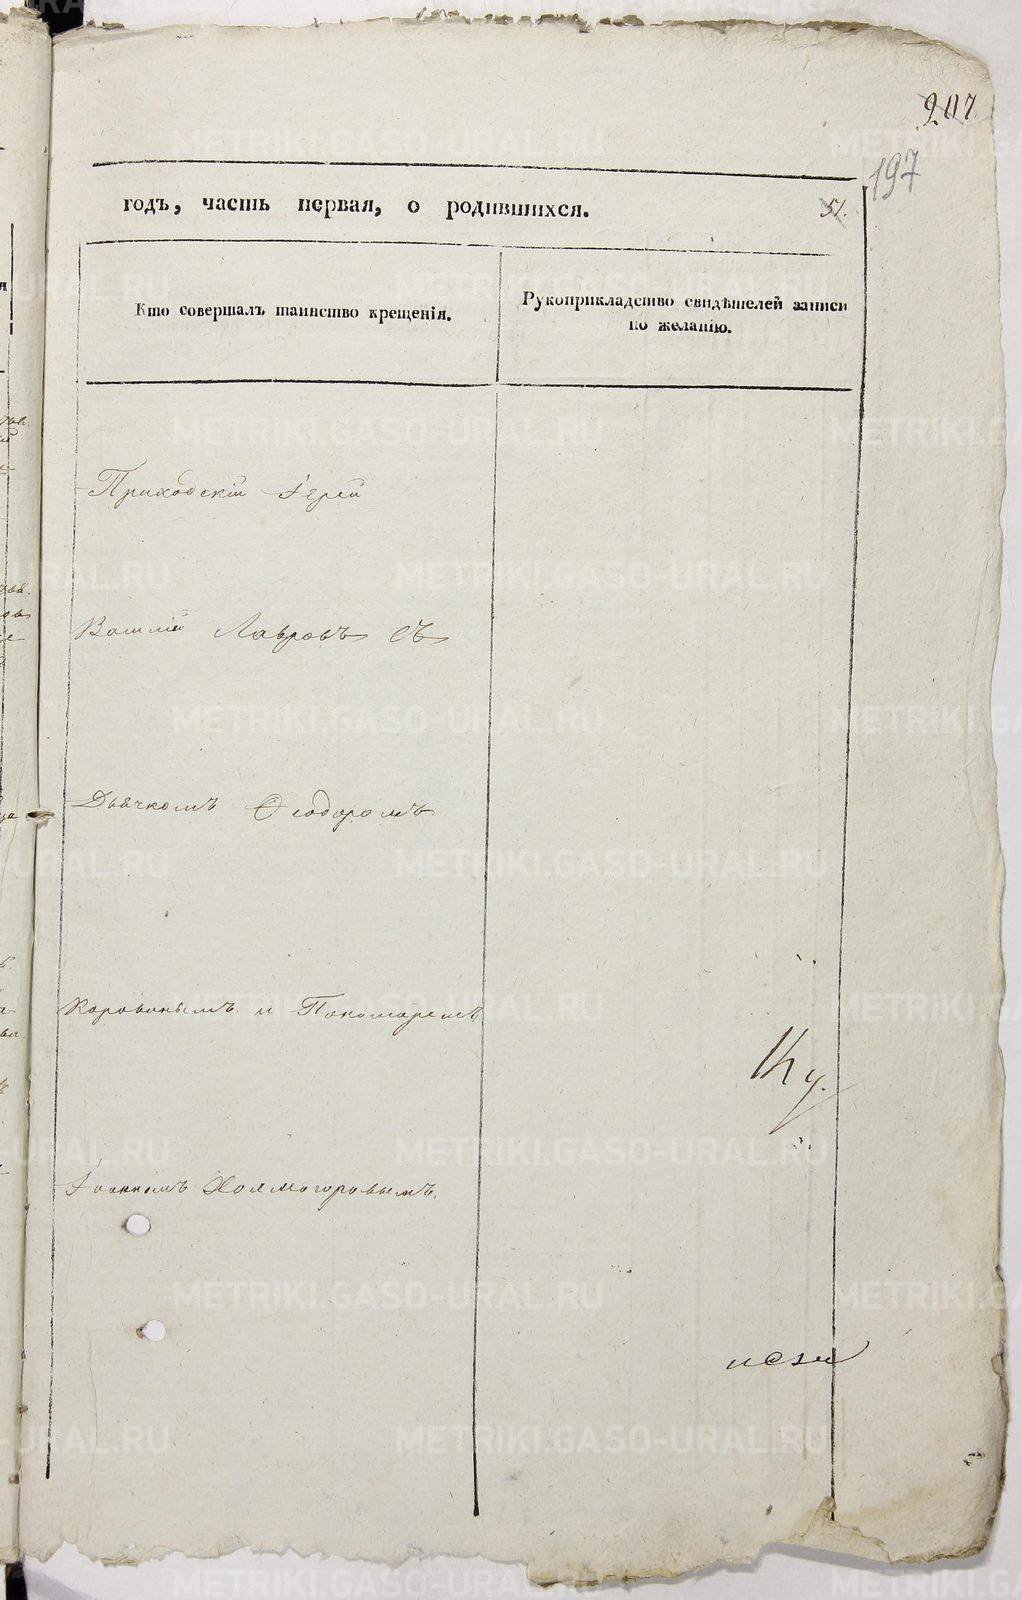 207
197
годъ, часть первая, о родившихся.
51.
Кто совершалъ таинство крещенія.
Рукоприкладство свидѣтелей записи
по желанію.
Приходскій Іерей
Василій Лавровъ съ
Дьячкомъ Ѳеодоромъ
Коровинымъ и Пономаремъ
Іоанномъ Холмогоровымъ.
METRIKI.GASO-URAL.RU